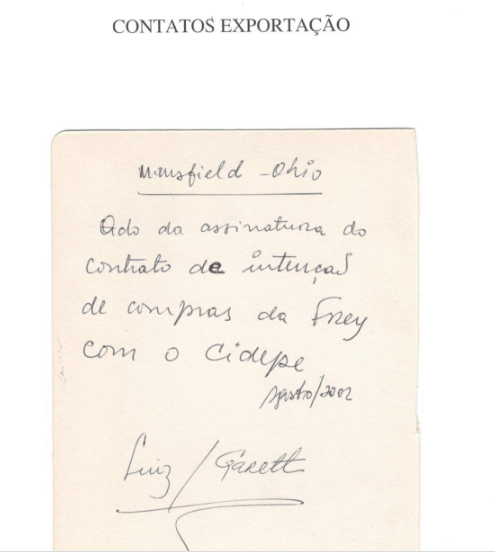 CONTATOS EXPORTAÇÃO
Mansfield - Ohio
Qdo da assinatura do
contrato de intenção
de compras da Frey
com o Cidepe
agosto/2002
Luiz / Garett